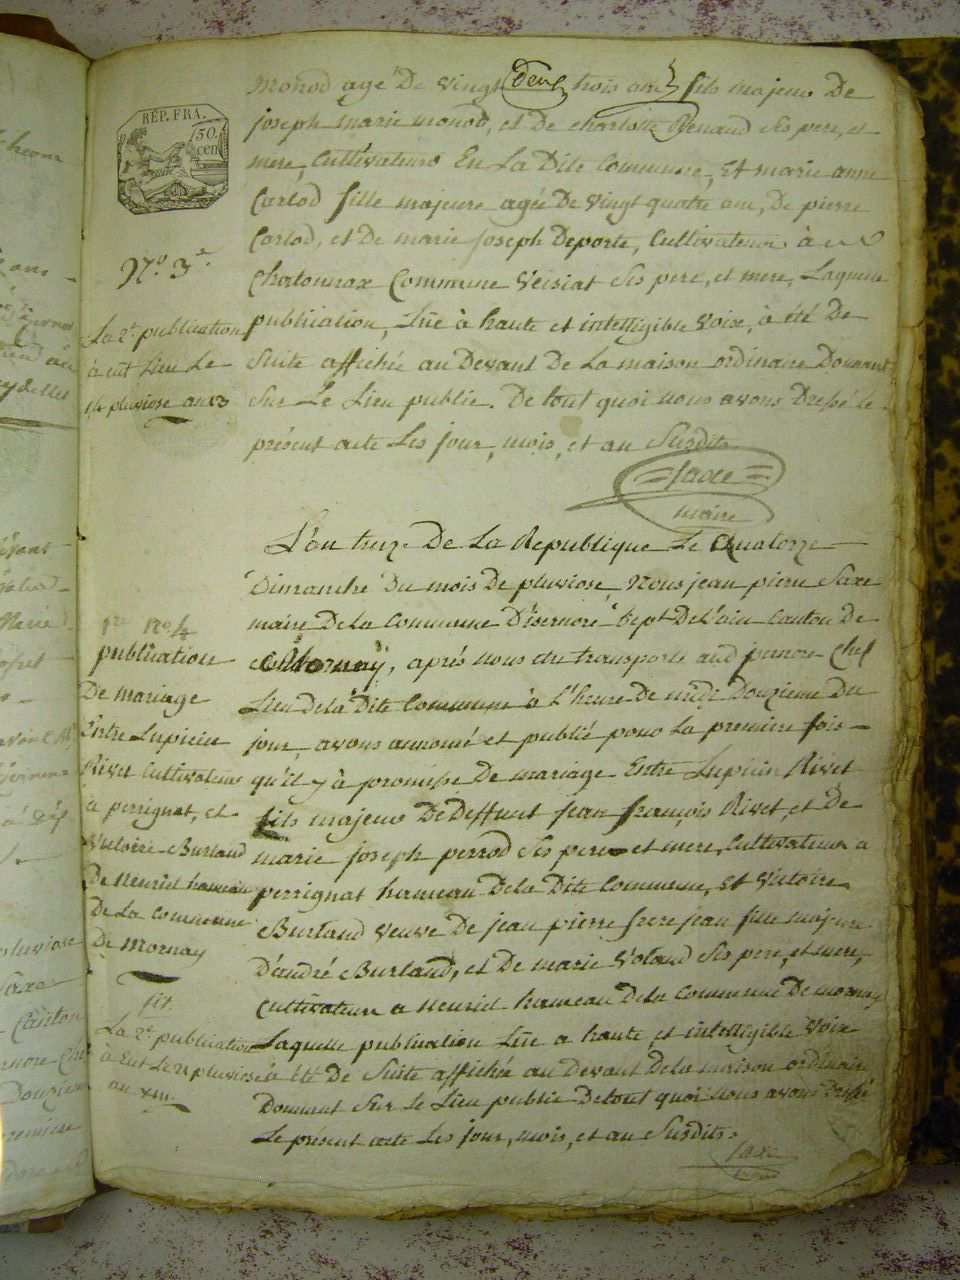 RÉP. FRA.
50.
cen.
Monod agé De vingt deux trois ans fils majeur De
joseph marie monod, et De charlotte Renaud ses pere, et
mere, Cultivateurs En La Dite Commune, Et marie anne
Carlod fille majeure agée De vingt quatre ans, De pierre
Carlod, et De marie joseph Deporte, Cultivateurs à
Chatonnax Commune Veisiat ses pere, et mere, Laquelle
publication, Lüe à haute et intelligible voix, à été De
Suite affichée au Devant De La maison ordinaire Donnant
Sur Le Lieu public. De tout quoi nous avons Dressé le
présent acte Les jour, mois, et an Susdits.
= Saxe =
maire
N.º 3.e
La 2.e publication
à eut Lieu Le
pluviose an 13
L'an treize De La Republique Le Quatorze
Dimanche Du mois De pluviose, Nous jean pierre Saxe
maire De La Commune D'isernore Dept De L'ain Canton De
, après nous etre transporté aud isernore Chef
Lieu de la Dite Commune à L'heure De midi Douzieme du
jour, avons annoncé et publié pour La premiere fois
qu'il y à promesse De mariage Entre Lupicin Rivet
fils majeur De Deffunt jean françois Rivet, et De
marie joseph perrod ses pere et mere, Cultivateurs a
perrignat hameau De La Dite Commune, Et Victoire
Burtaud Veuve De jean pierre frerejean fille majeure
D'andré Burtaud, et De marie Volaud ses pere, et mere,
Cultivateurs a Heuriel hameau De la Commune De mornay
Laquelle publication Lüe a haute et intelligible voix
à été De Suite affichée au Devant De la maison ordinaire
Donnant Sur Le Lieu public De tout quoi nous avons Dressé
Le présent acte Les jour, mois, et an Susdits.
Saxe
1re No. 4
publication
De mariage
Entre Lupicin
Rivet Cultivateur
à perrignat, et
Victoire Burtaud
De Heuriel hameau
De La Commune
De Mornay
La 2.e publication
à Eut Le 21 pluviose
an xiii.